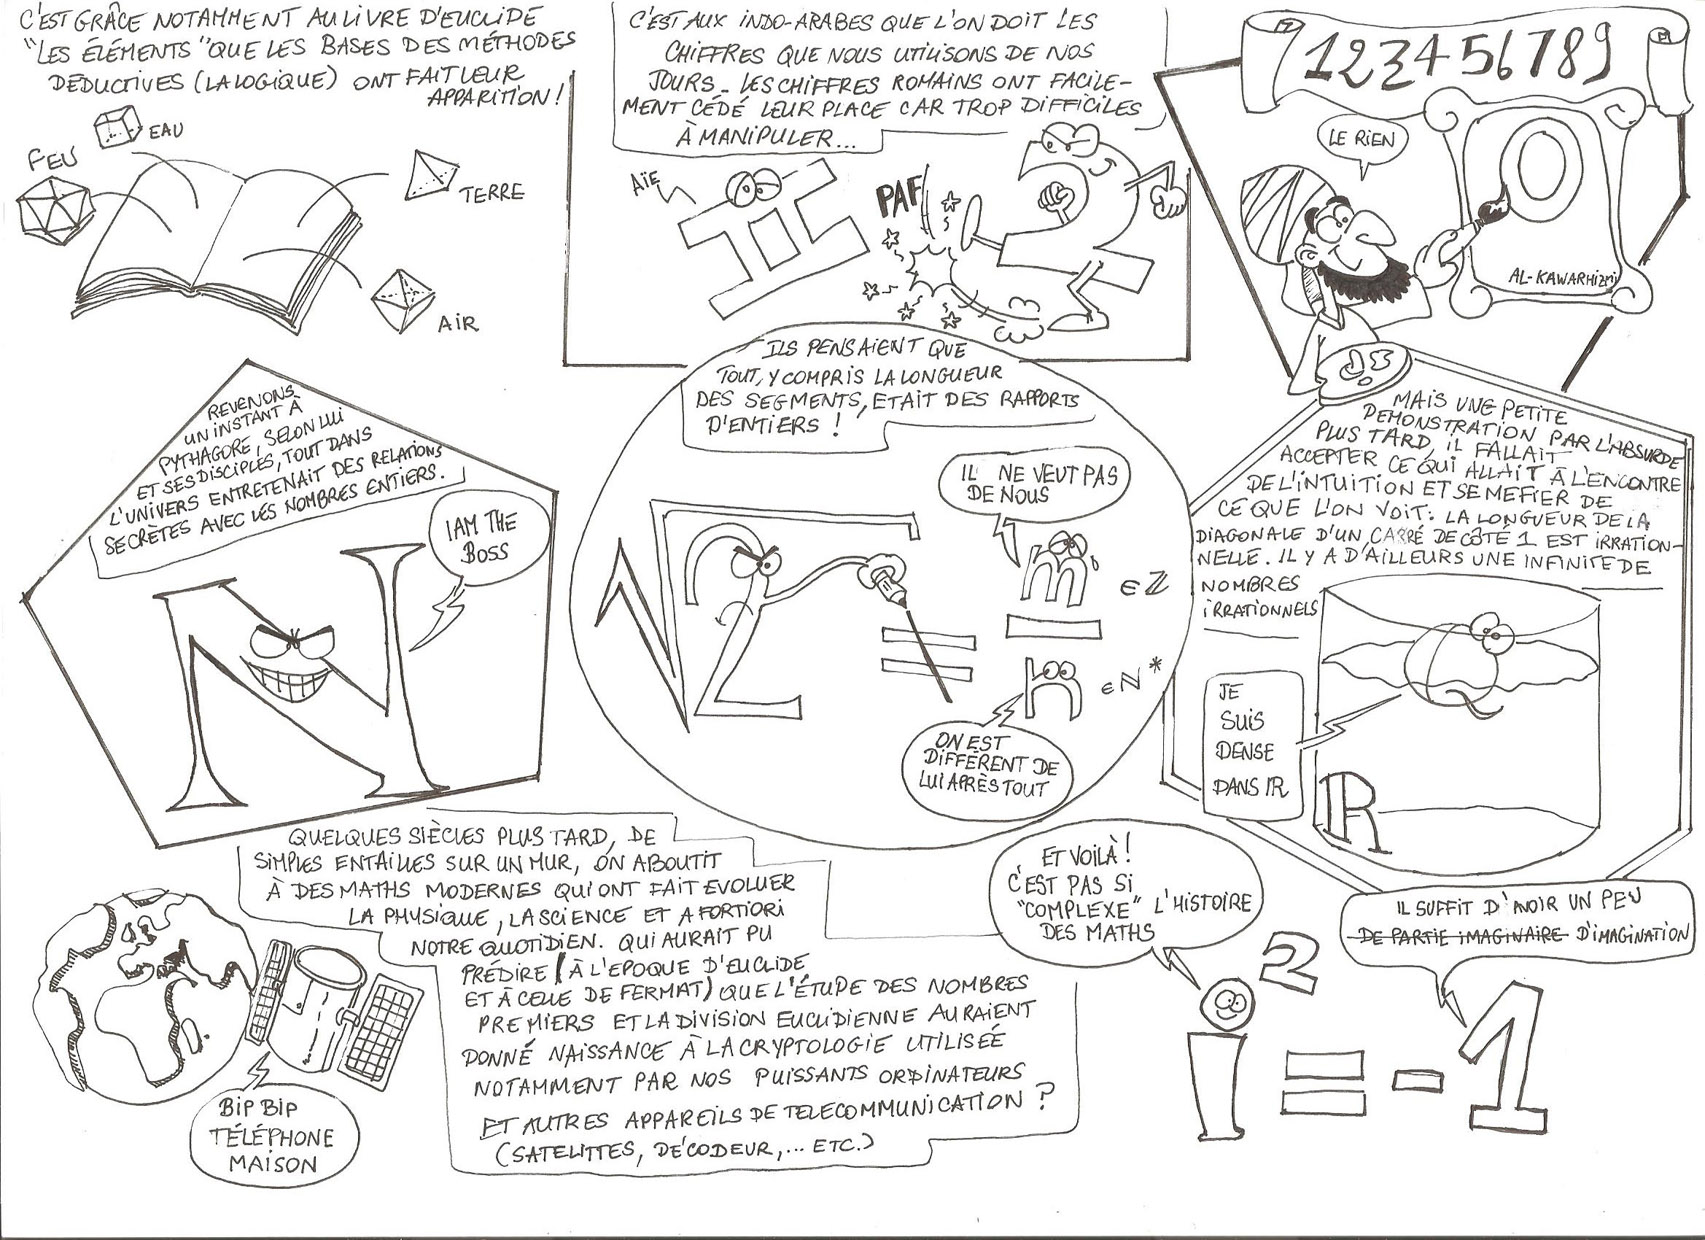 C'EST GRÂCE NOTAMMENT AU LIVRE D'EUCLIDE
"LES ÉLÉMENTS" QUE LES BASES DES MÉTHODES
DÉDUCTIVES (LA LOGIQUE) ONT FAIT LEUR
APPARITION !
EAU
FEU
TERRE
AIR
C'EST AUX INDO-ARABES QUE L'ON DOIT LES
CHIFFRES QUE NOUS UTILISONS DE NOS
JOURS. LES CHIFFRES ROMAINS ONT FACILE-
MENT CÉDÉ LEUR PLACE CAR TROP DIFFICILES
À MANIPULER...
AÏE
PAF
II
2
1 2 3 4 5 6 7 8 9
LE RIEN
0
AL-KAWARHIZMI
REVENONS
UN INSTANT À
PYTHAGORE, SELON LUI
ET SES DISCIPLES, TOUT DANS
L'UNIVERS ENTRETENAIT DES RELATIONS
SECRÈTES AVEC LES NOMBRES ENTIERS.
I AM THE
BOSS
N
ILS PENSAIENT QUE
TOUT, Y COMPRIS LA LONGUEUR
DES SEGMENTS, ETAIT DES RAPPORTS
D'ENTIERS !
IL NE VEUT PAS
DE NOUS
√2 ≠ m/n
m ∈ ℤ
n ∈ ℕ*
ON EST
DIFFÉRENT DE
LUI APRÈS TOUT
MAIS UNE PETITE
DEMONSTRATION PAR L'ABSURDE
PLUS TARD, IL FALLAIT
ACCEPTER CE QUI ALLAIT À L'ENCONTRE
DE L'INTUITION ET SE MEFIER DE
CE QUE L'ON VOIT: LA LONGUEUR DE LA
DIAGONALE D'UN CARRÉ DE CÔTÉ 1 EST IRRATION-
NELLE. IL Y A D'AILLEURS UNE INFINITE DE
NOMBRES
IRRATIONNELS
JE
SUIS
DENSE
DANS ℝ
ℝ
QUELQUES SIÈCLES PLUS TARD, DE
SIMPLES ENTAILLES SUR UN MUR, ON ABOUTIT
À DES MATHS MODERNES QUI ONT FAIT EVOLUER
LA PHYSIQUE, LA SCIENCE ET A FORTIORI
NOTRE QUOTIDIEN. QUI AURAIT PU
PRÉDIRE (À L'EPOQUE D'EUCLIDE
ET À CELLE DE FERMAT) QUE L'ÉTUPE DES NOMBRES
PREMIERS ET LA DIVISION EUCLIDIENNE AURAIENT
DONNÉ NAISSANCE À LA CRYPTOLOGIE UTILISÉE
NOTAMMENT PAR NOS PUISSANTS ORDINATEURS
ET AUTRES APPAREILS DE TELECOMMUNICATION ?
(SATELITTES, DÉCODEUR,... ETC.)
BIP BIP
TÉLÉPHONE
MAISON
ET VOILÀ !
C'EST PAS SI
"COMPLEXE" L'HISTOIRE
DES MATHS
IL SUFFIT D'AVOIR UN PEU
DE PARTIE IMAGINAIRE D'IMAGINATION
i² = -1